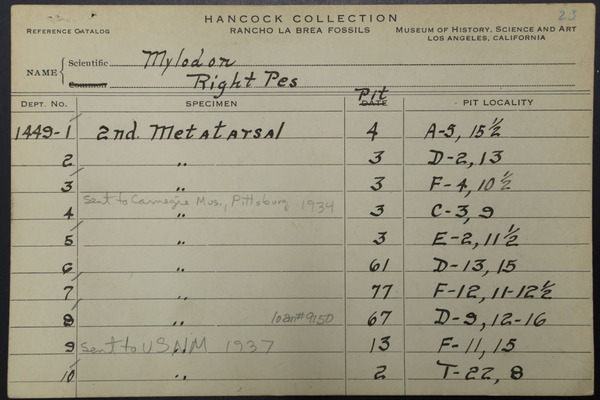 HANCOCK COLLECTION 23
REFERENCE CATALOG RANCHO LA BREA FOSSILS MUSEUM OF HISTORY, SCIENCE AND ART
LOS ANGELES, CALIFORNIA
NAME { Scientific Mylodon
Common Right Pes
DEPT. NO. SPECIMEN Pit DATE PIT LOCALITY
1449-1 2nd. Metatarsal 4 A-5, 15½
2 " 3 D-2, 13
3 " 3 F-4, 10½
sent to Carnegie Mus., Pittsburg 1934
4 " 3 C-3, 9
5 " 3 E-2, 11½
6 " 61 D-13, 15
7 " 77 F-12, 11-12½
8 " loan#9150 67 D-9, 12-16
9 sent to USNM 1937 " 13 F-11, 15
10 " 2 T-22, 8